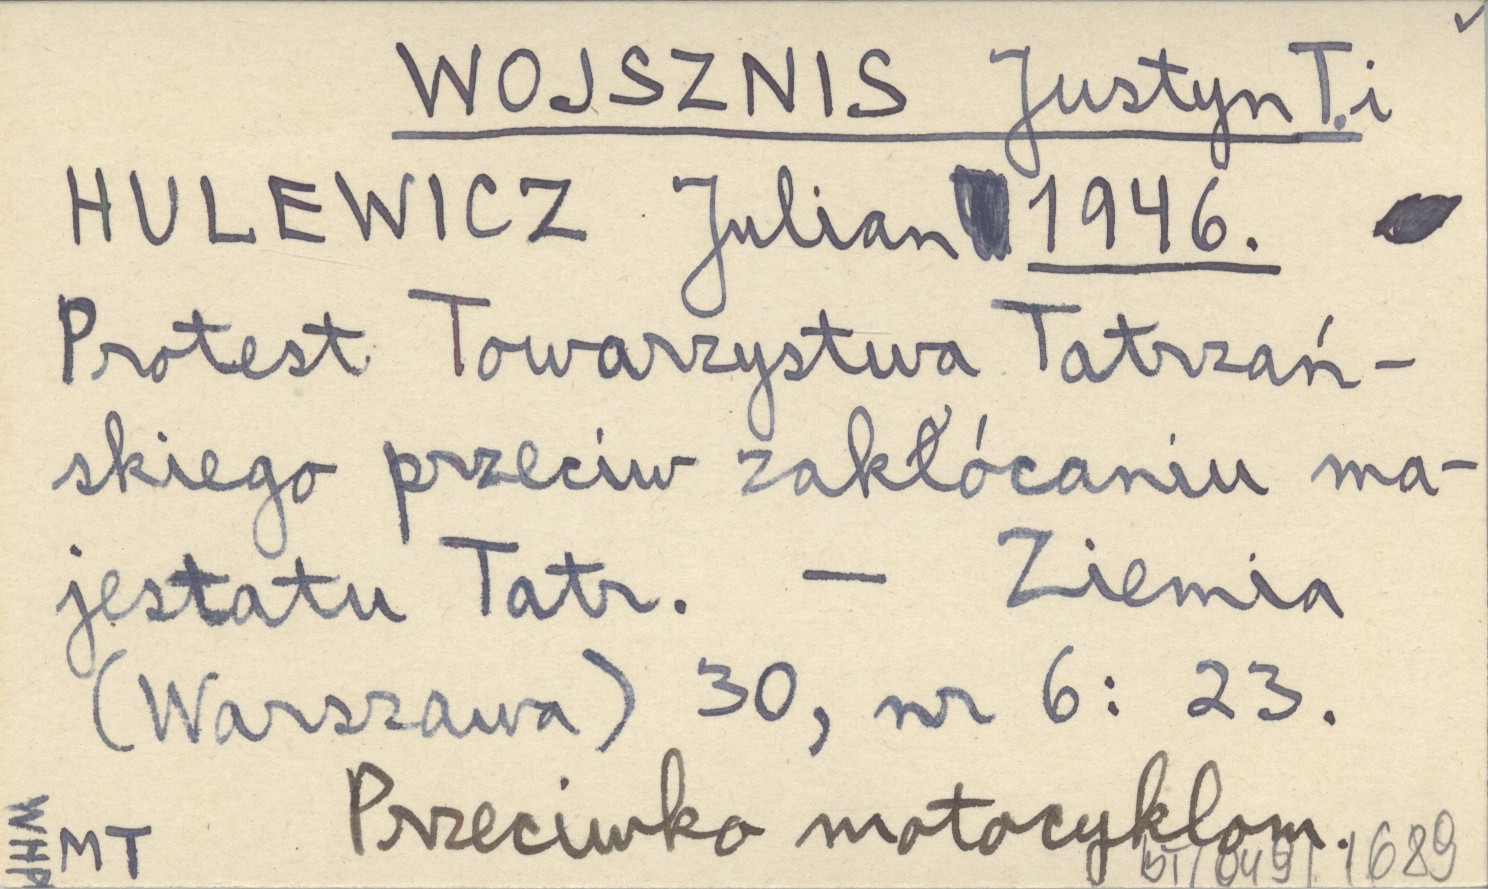 WOJSZNIS Justyn T. i
HULEWICZ Julian 1946.
Protest Towarzystwa Tatrzań-
skiego przeciw zakłócaniu ma-
jestatu Tatr. — Ziemia
(Warszawa) 30, nr 6: 23.
Przeciwko motocyklom.
WHP
MT
1689